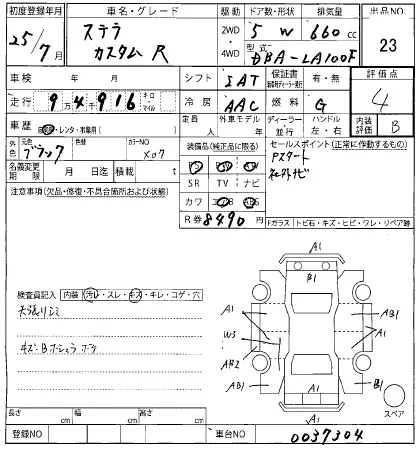 初度登録年月
25/7月
車名・グレード
ステラ
カスタム R
駆動
2WD
4WD
ドア数・形状
5 W
排気量
660 cc
型式
DBA-LA100F
出品NO
23
車検 年 月
シフト
IAT
保証書
有・無
評価点
4
走行
94916
キロ・マイル
冷房
AAC
燃料
G
車歴
自家用・レンタ・事業用( )
定員 人
外車モデル年
ディーラー
並行
ハンドル
左・右
内装評価
B
外色
元色
ブラック
色替
カラーNO
X07
装備品(純正品に限る)
PS PW AW
SR TV ナビ
カワ エアB ABS
R券 8490円
セールスポイント(正常に作動するもの)
Pスタート
社外ナビ
名義変更期限
月 日迄
積載 t
注意事項(欠品・修復・不具合箇所および状態)
Fガラス トビ石・キズ・ヒビ・ワレ・リペア跡
検査員記入
内装 (汚レ・スレ・キズ・キレ・コゲ・穴
天張りシミ
キズ・B
A1
B1
A1
AB1
W3
A1
AB2
AB1
A1
B1
A1
スペア
長さ cm
幅 cm
高さ cm
登録NO
車台NO
0037304